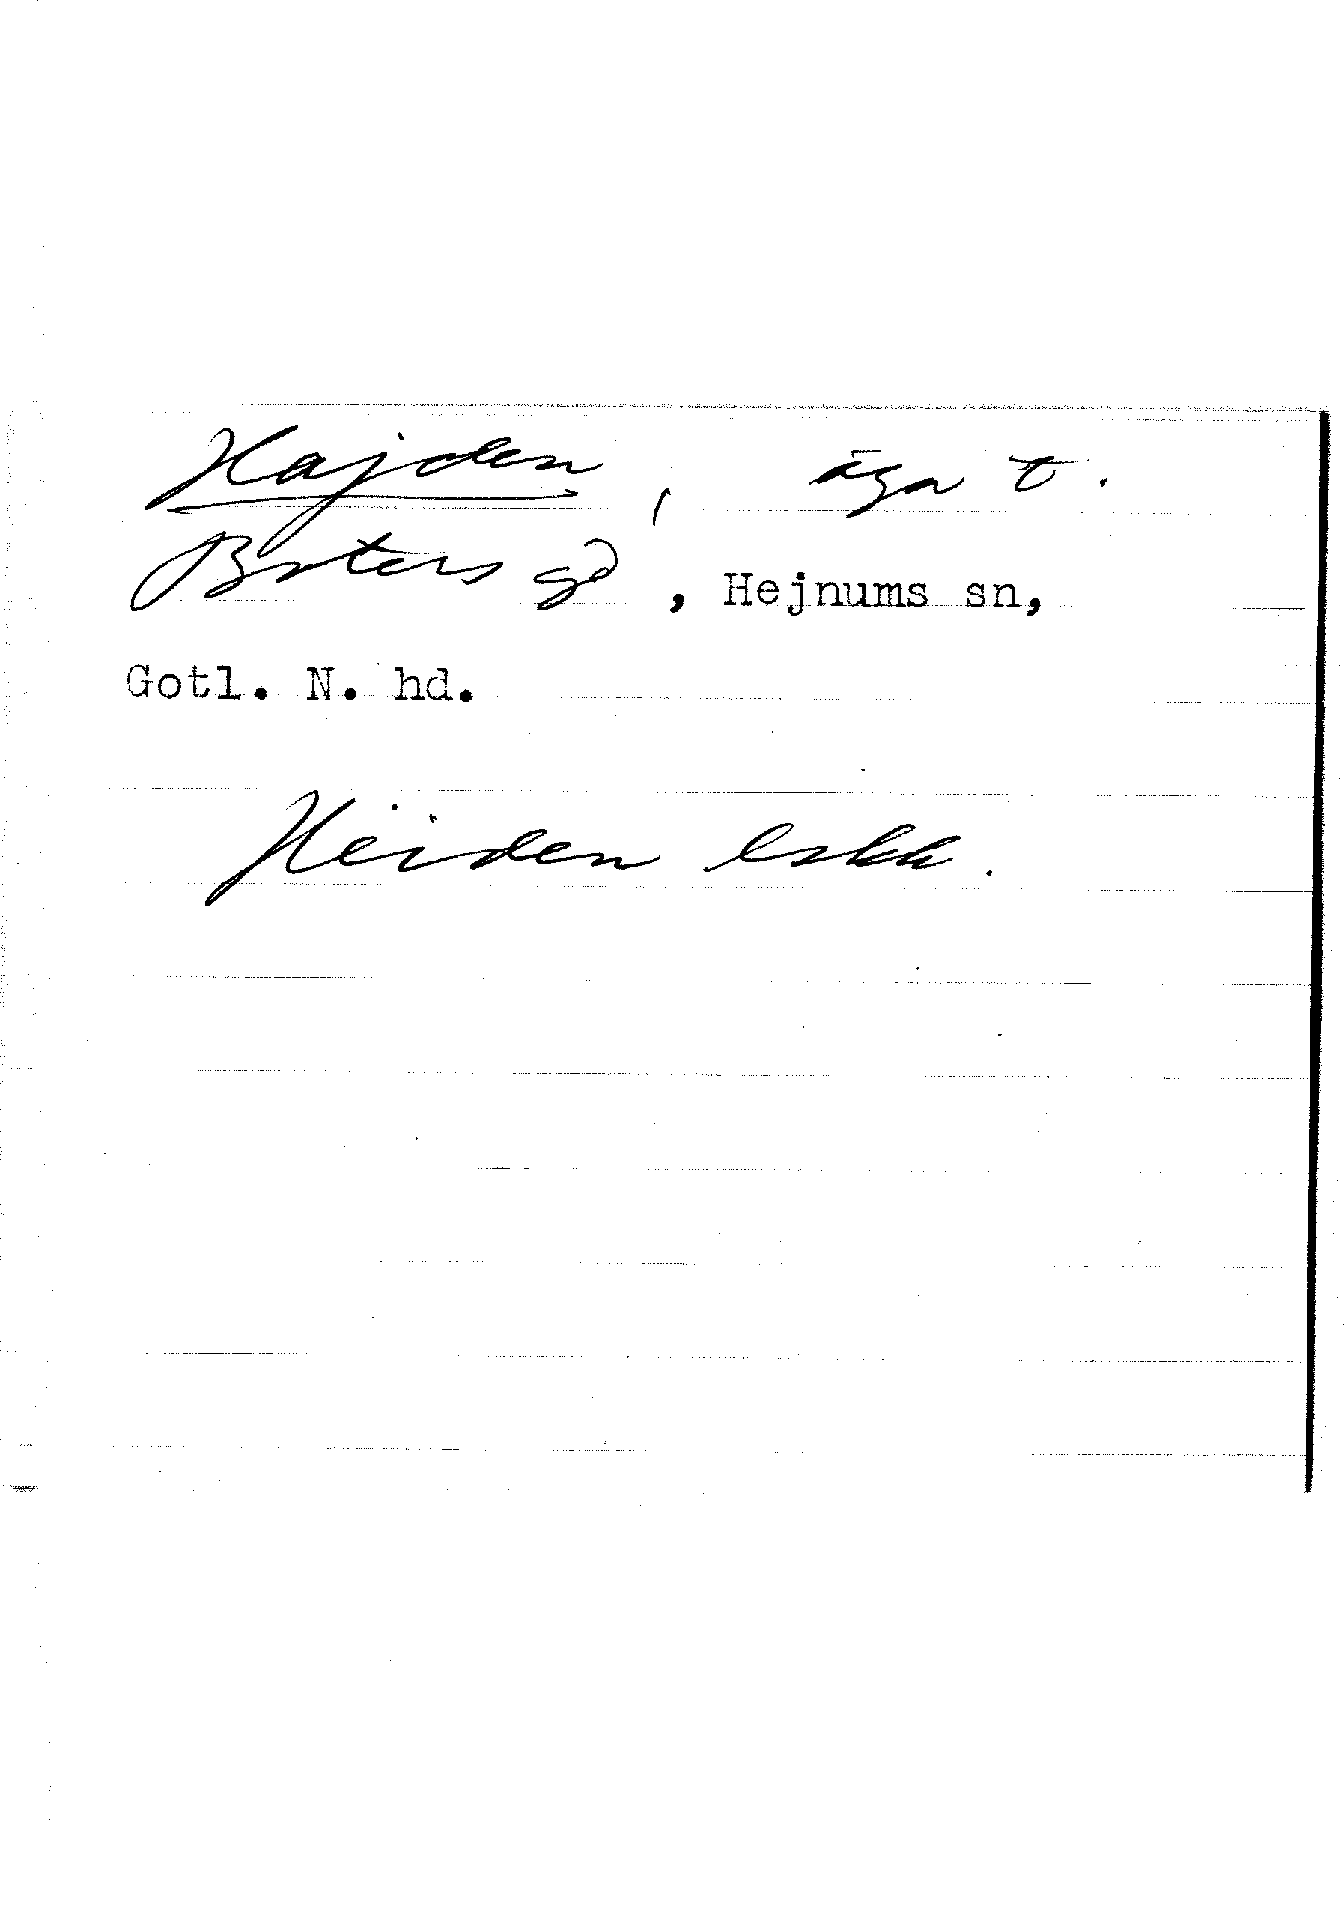 Hajden, äga t.
Boters gd, Hejnums sn,
Gotl. N. hd.
Heiden eskk.